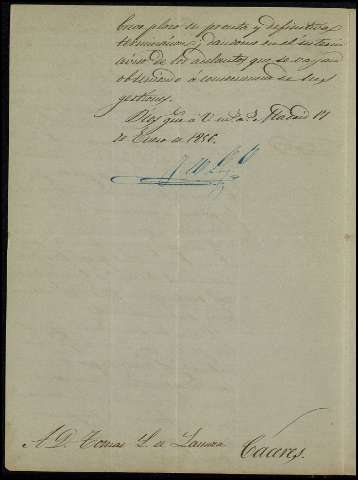 breve plazo su pronta y definitiva
terminacion, y dandome en el interin
aviso de los adelantos que se vayan
obteniendo á consecuencia de sus
gestiones.
Dios gue á V. m. a. Madrid 17
de Enero de 1866.
A D. Tomas G. de Lamora
Caceres.